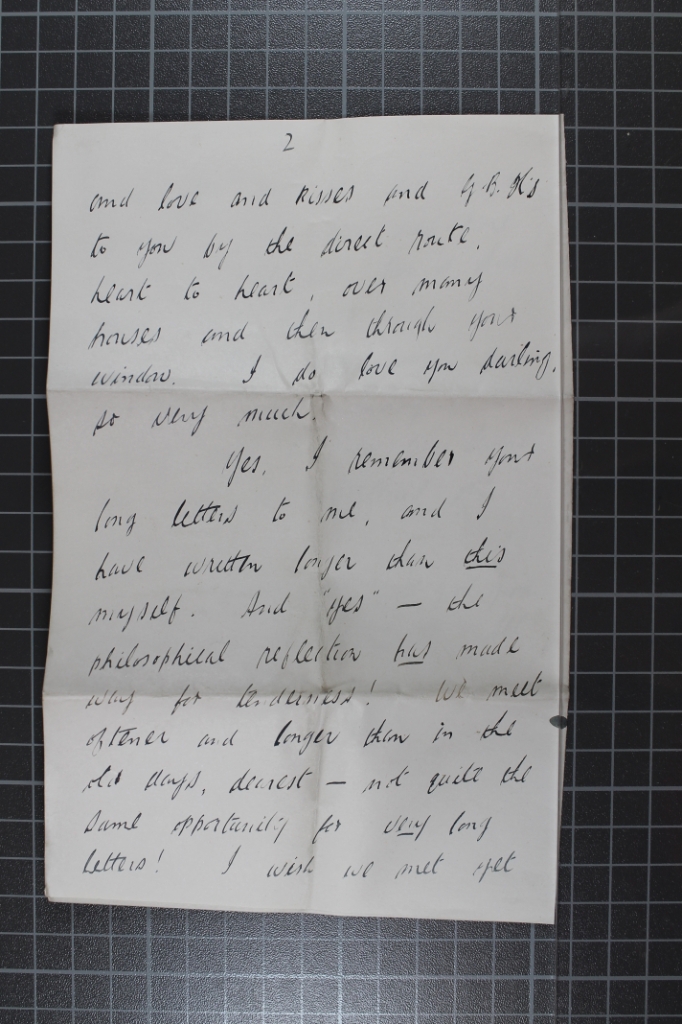 2
and love and kisses and G.B.H's
to you by the direct route,
heart to heart, over many
houses and then through your
window. I do love you darling,
so very much.
Yes, I remember your
long letters to me, and I
have written longer than this
myself. And "yes" — the
philosophical reflection has made
way for tenderness! We meet
oftener and longer than in the
old days, dearest — not quite the
same opportunity for very long
letters! I wish we met yet